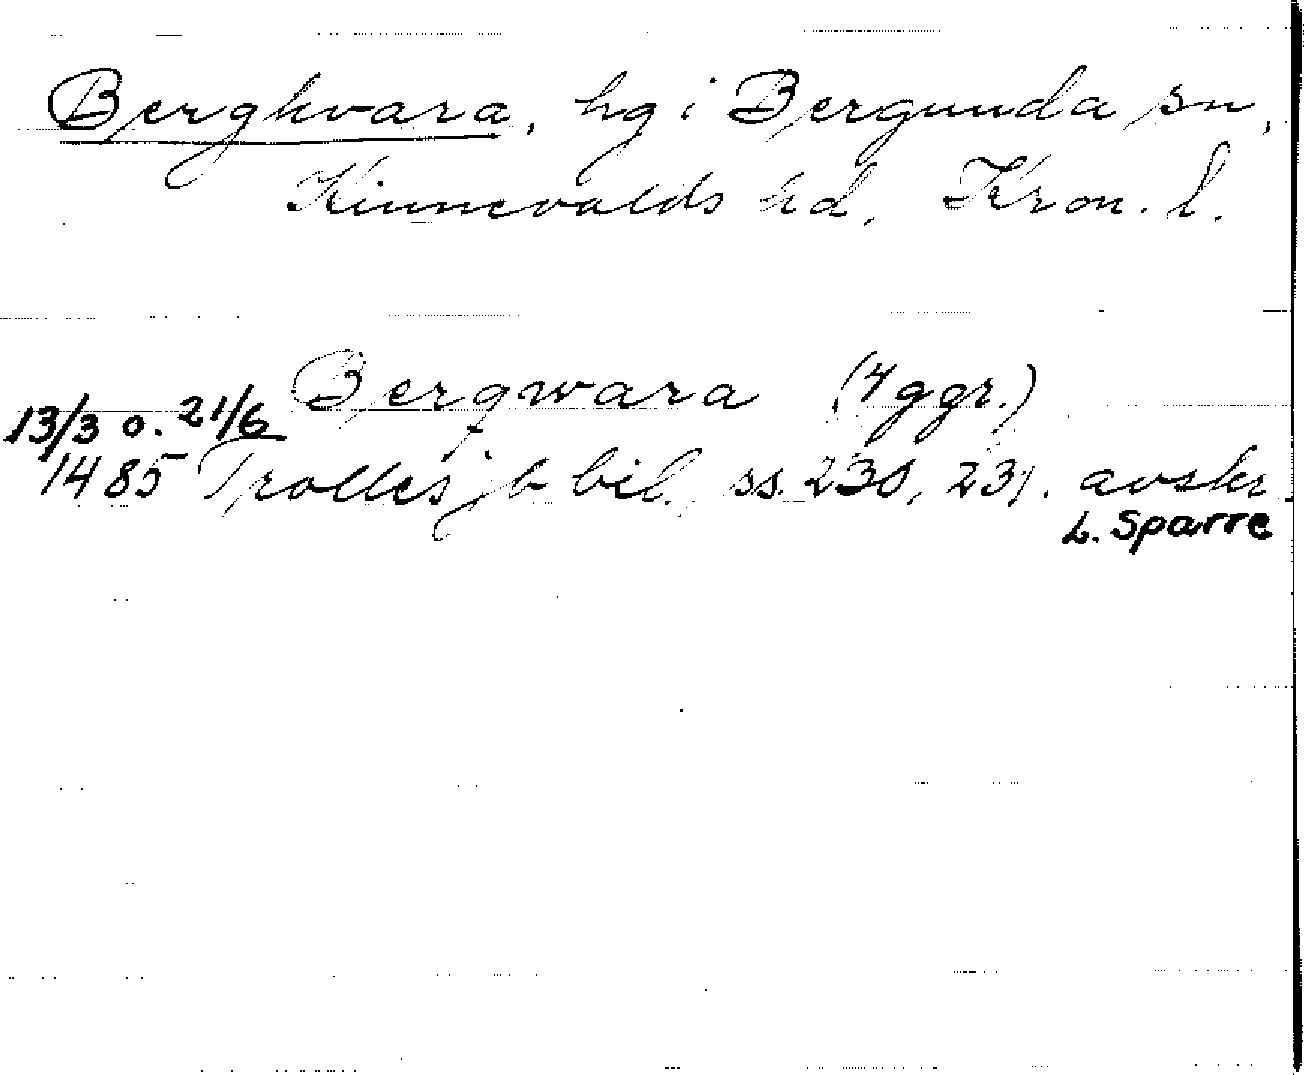 Berghvara, hg i Bergunda sn,
Kinnevalds hd, Kron. l.
Bergwara (4 ggr.)
13/3 o. 21/6
1485 Trolles jb bil. ss. 230, 231. avskr.
L. Sparre